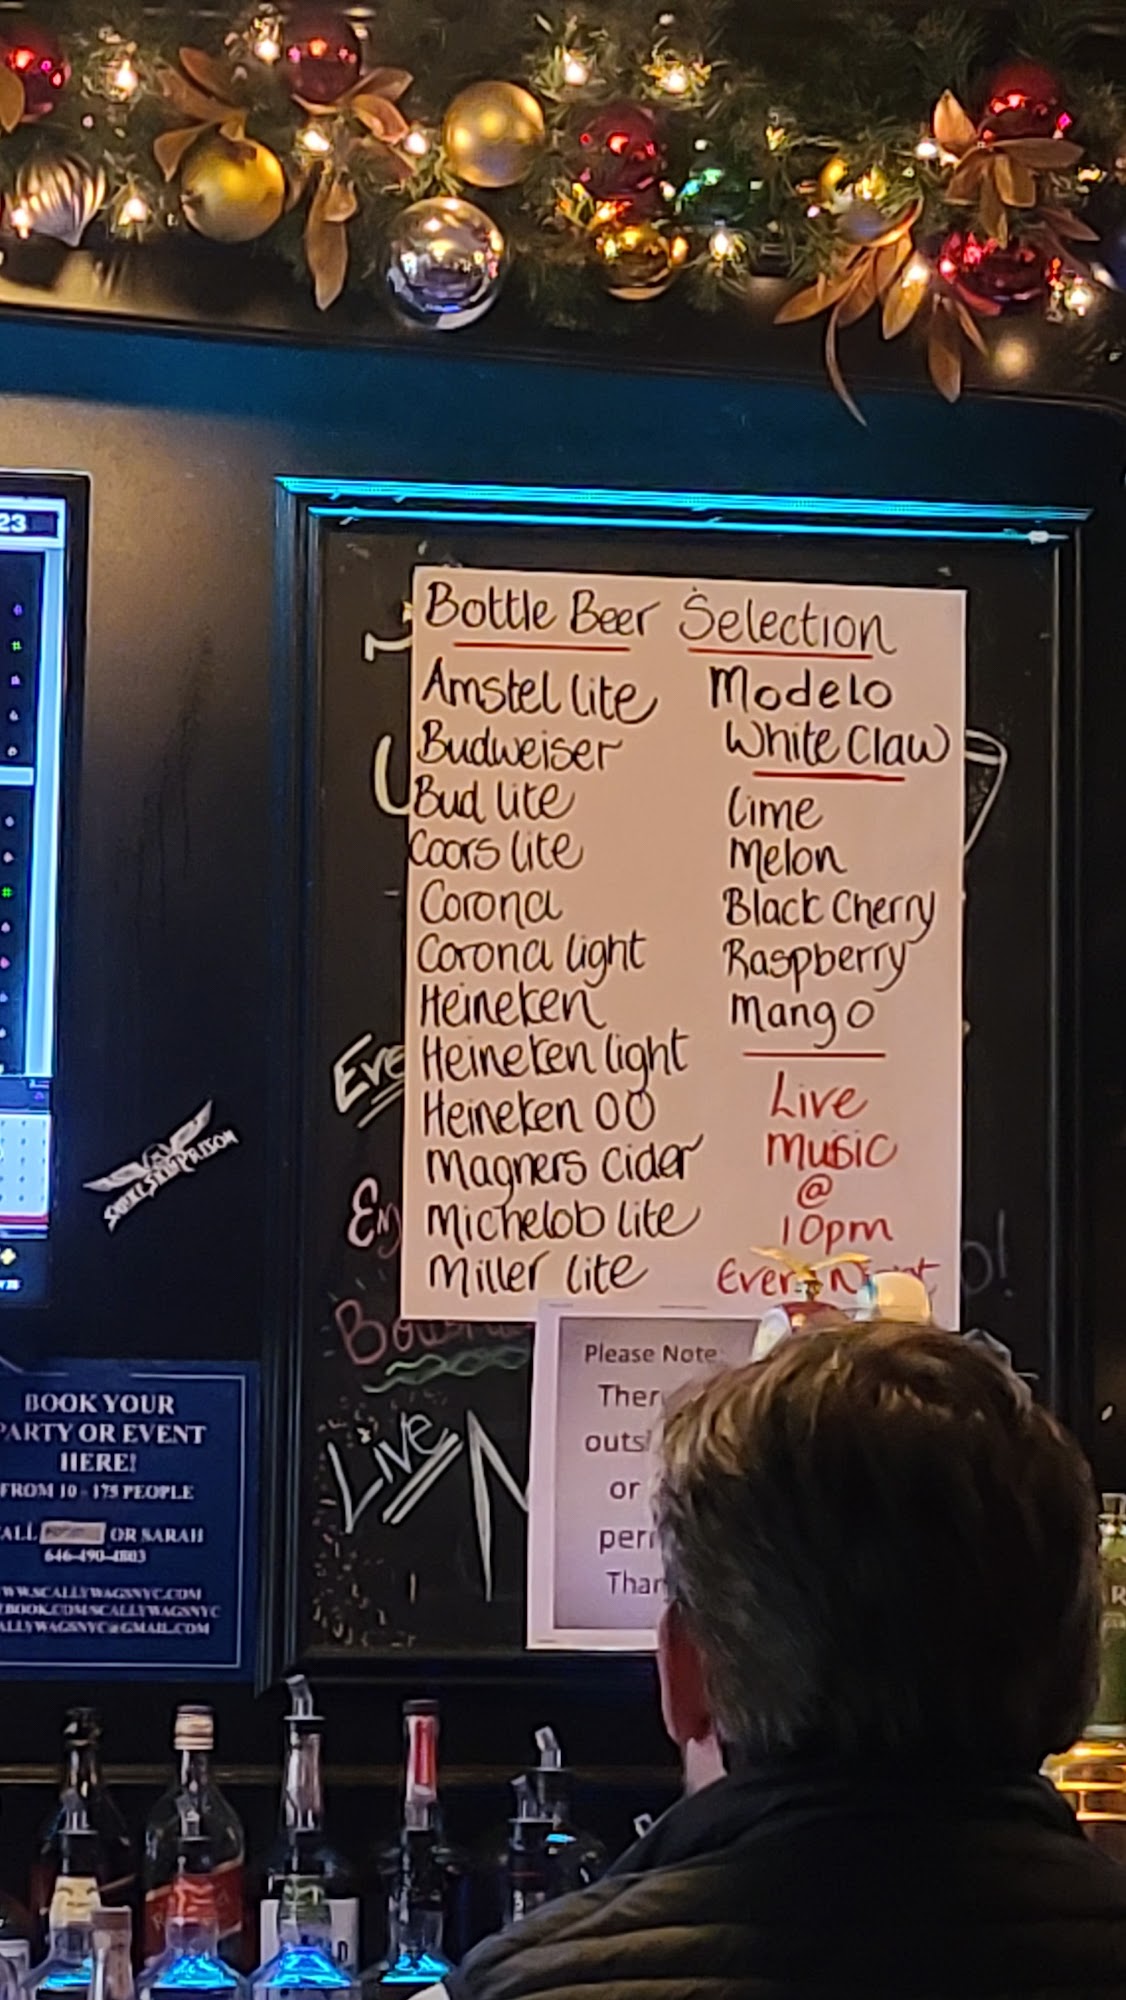 23
Bottle Beer Selection
Amstel lite
Budweiser
Bud lite
Coors lite
Corona
Corona light
Heineken
Heineken light
Heineken 00
Magners Cider
Michelob lite
Miller lite
Modelo
White Claw
Lime
Melon
Black Cherry
Raspberry
Mango
Live
Music
@
10pm
Every Night
Live
Please Note
outs
or
SNAKE SKIN PRISON
BOOK YOUR
PARTY OR EVENT
HERE!
FROM 10 - 175 PEOPLE
OR SARAH
646-490-4803
WWW.SCALLYWAGSNYC.COM
BOOK.COM/SCALLYWAGSNYC
ALLYWAGSNYC@GMAIL.COM